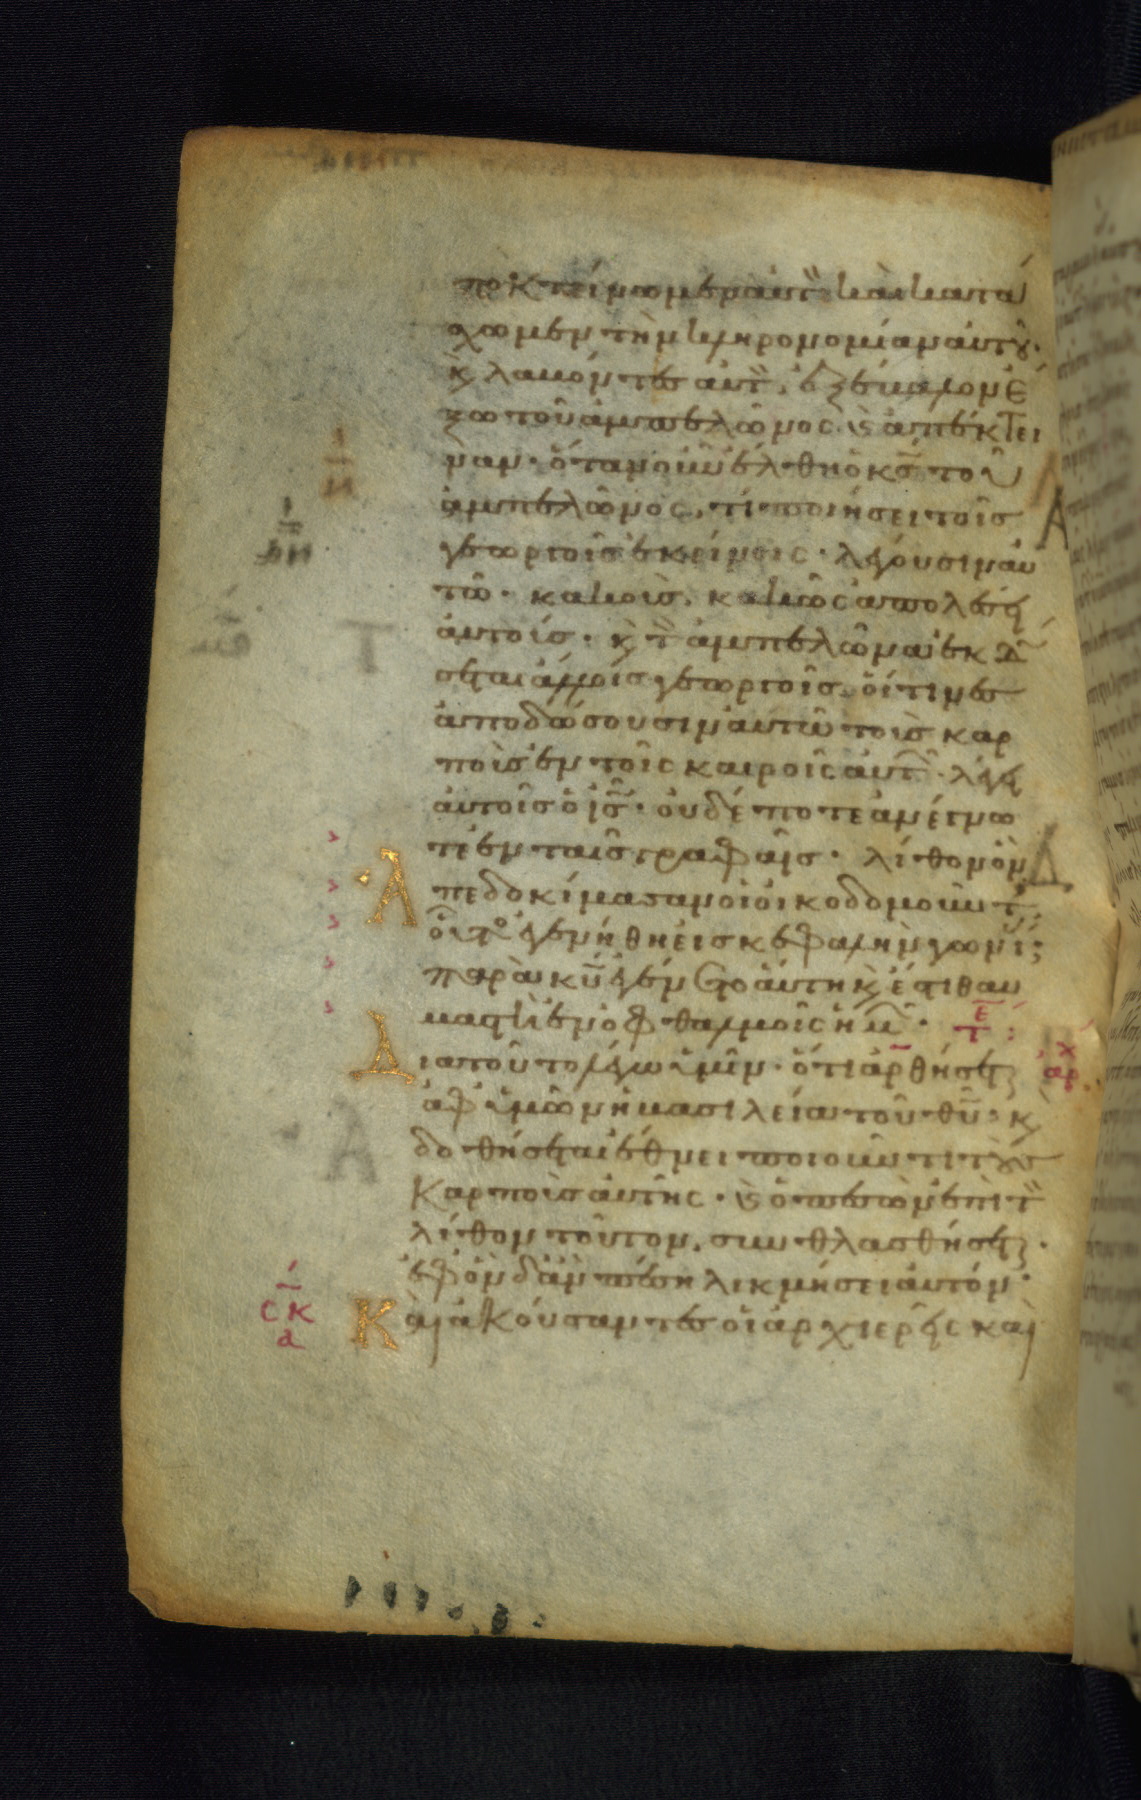 ποκτείνωμεν αυτ̏ καὶ κατά
σχωμεν τὴν κληρονομίαν αὐτȣ͂·
κ̀ λαβόντες αὐτ̏, ἐξέβαλον ἔ
ξω τοῦ ἀμπελῶνος κ̀ ἀπέκτει
ναν· ὅταν οὖν ἔλθη ὁ κ̅ς̅ τοῦ
ἀμπελῶνος, τί ποιήσει τοῖς
γεωργοῖς ἐκείνοις· λέγουσιν αὐ
τῶ· κακοὺς, κακῶς ἀπολέσει
αὐτούς· κ̀ τ̏ ἀμπελῶνα ἐκδώ
σεται ἄλλοις γεωργοῖς, οἵτινες
ἀποδώσουσιν αὐτῶ τοὺς καρ
ποὺς ἐν τοῖς καιροῖς αὐτ͂· λέγει
αὐτοῖς ὁ ι̅ς̅· οὐδέποτε ἀνέγνω
τε ἐν ταῖς γραφαῖς· λίθον ὃν
ἀπεδοκίμασαν οἱ οἰκοδομοῦντ
οὗτο ἐγενήθη εἰς κεφαλὴν γωνί
παρὰ κ̅υ̅ ἐγένετο αὕτη κ̀ ἔστι θαυ
μαστὴ ἐν ὀφθαλμοῖς ἡμ͂·
Διατοῦτο λέγω ὑμῖν· ὅτι ἀρθήσεται
ἀφ ὑμῶν ἡ βασιλεία τοῦ θ̅υ̅· κ̀
δοθήσεται ἔθνει ποιοῦντι τȣ̀ς
καρποὺς αὐτῆς· κ̀ ὁ πεσὼν ἐπὶ τ̏
λίθον τοῦτον, συνθλασθήσεται·
ἐφ ὃν δἂν πέση λικμήσει αὐτόν·
Καὶ ἀκούσαντες οἱ ἀρχιερεῖς καὶ